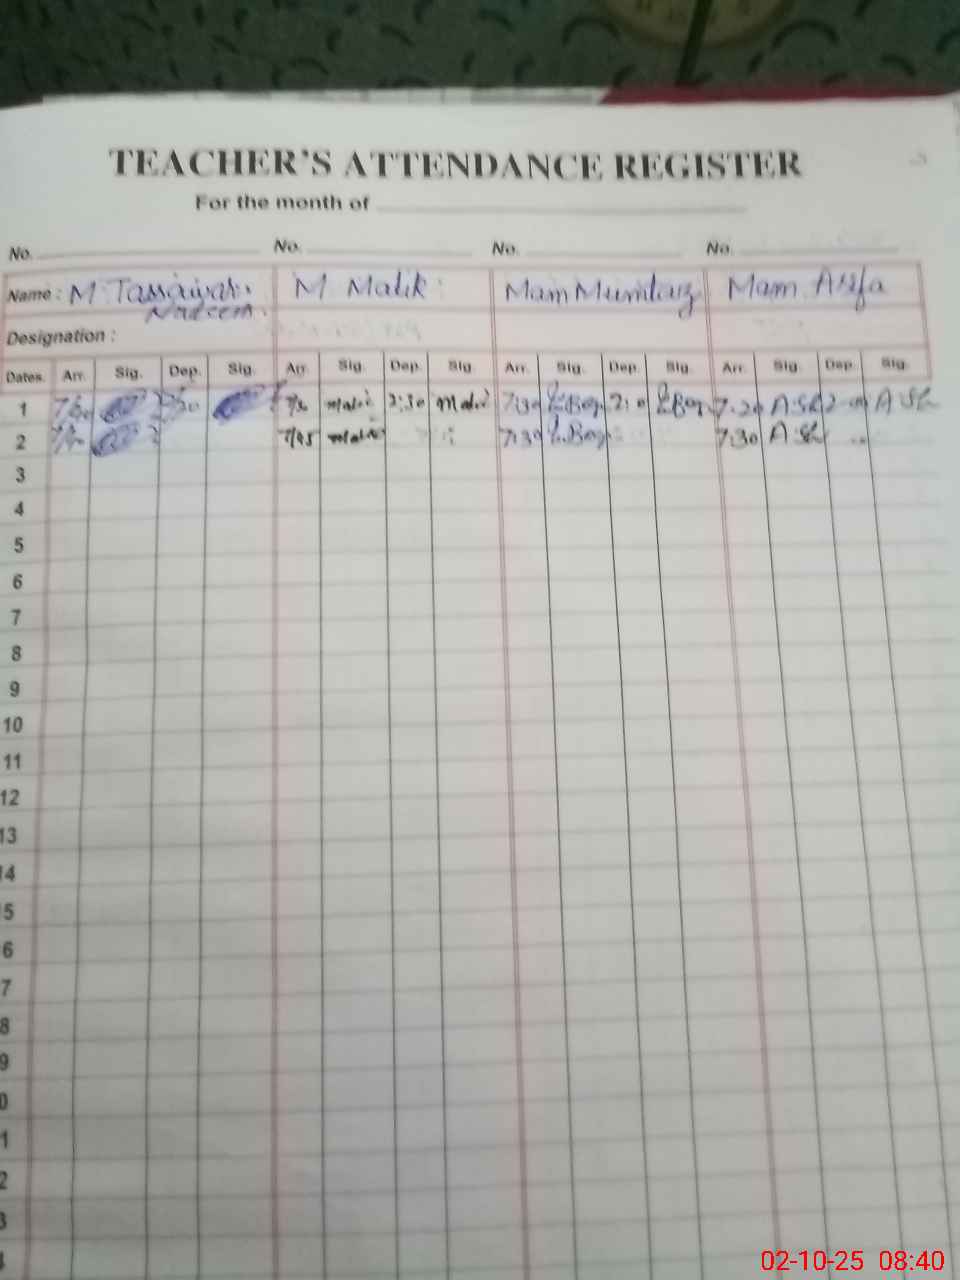 TEACHER'S ATTENDANCE REGISTER
For the month of
No. No. No. No.
Name: M Tassawar. M Malik Mam Mumtaz Mam Asifa
Nadeem.
Designation :
Dates. Arr. Sig. Dep. Sig. Arr. Sig. Dep. Sig. Arr. Sig. Dep. Sig. Arr. Sig. Dep. Sig.
1 Malik 2:30 Malik 7:30 2:0 7.20 A.Sh A.Sh
2 7/45 Malik 7:30 7:30 A.Sh
3
4
5
6
7
8
9
10
11
12
13
14
15
6
7
8
9
0
1
2
3
4
02-10-25 08:40